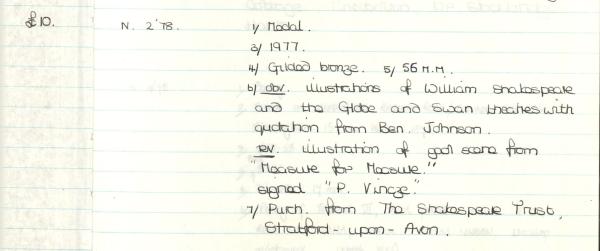 £10. N. 2'78. 1/ Medal.
3/ 1977.
4/ Gilded bronze. 5/ 56 M.M.
6/ obv. illustrations of William Shakespeare
and the Globe and Swan theatres with
quotation from Ben. Johnson.
rev. illustration of gaol scene from
"Measure for Measure."
signed "P. Vincze."
7/ Purch. from The Shakespeare Trust,
Stratford - upon - Avon.